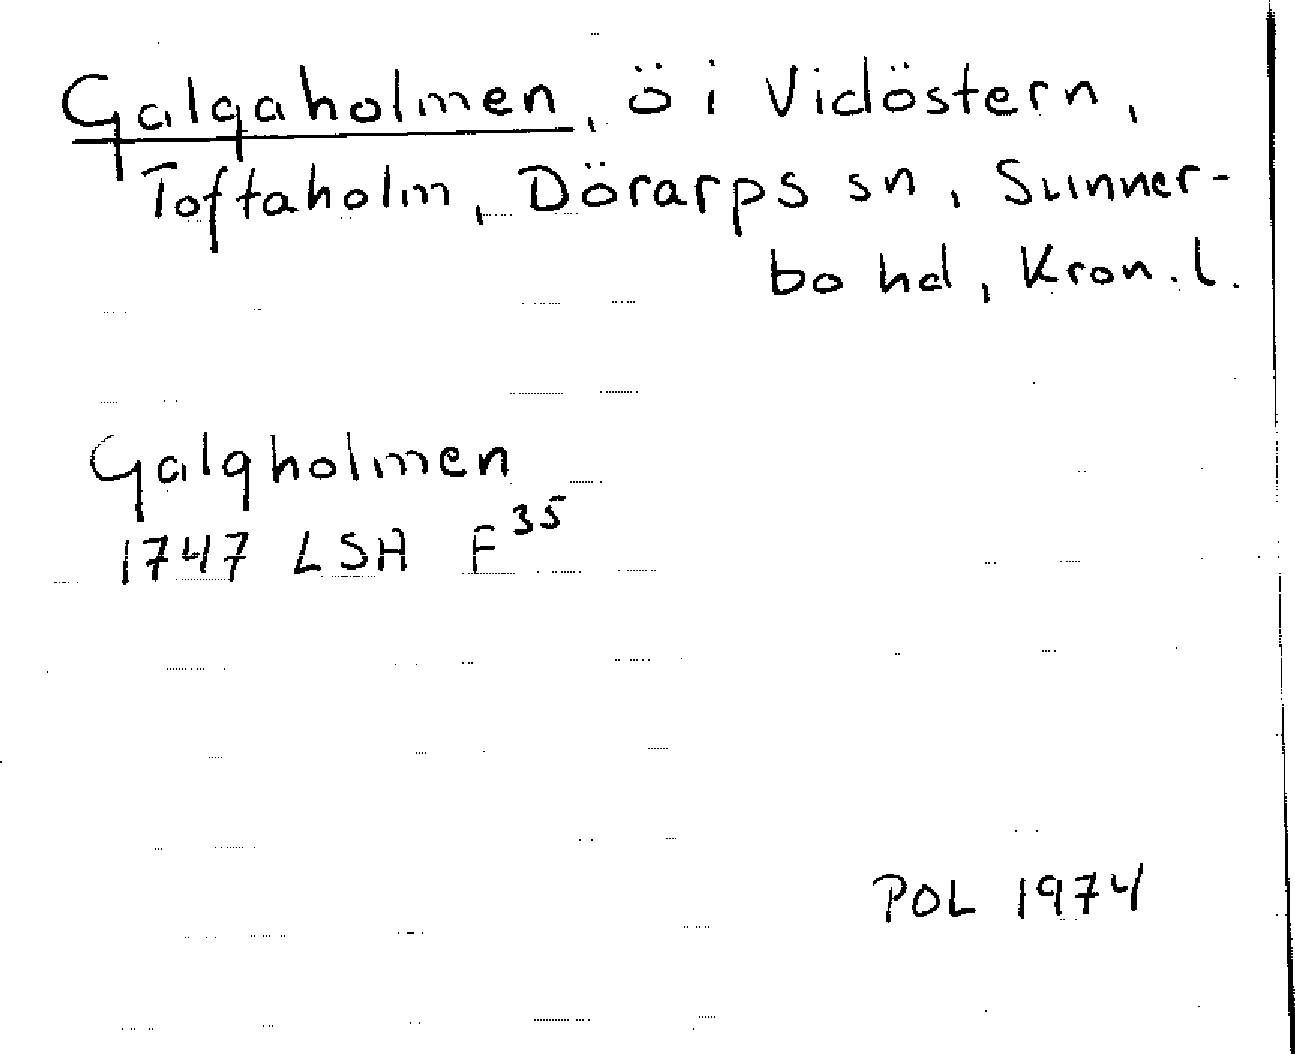 Galgaholmen, ö i Vidöstern,
Toftaholm, Dörarps sn, Sunner-
bo hd, Kron. l.
Galgholmen
1747 LSA F³⁵
POL 1974